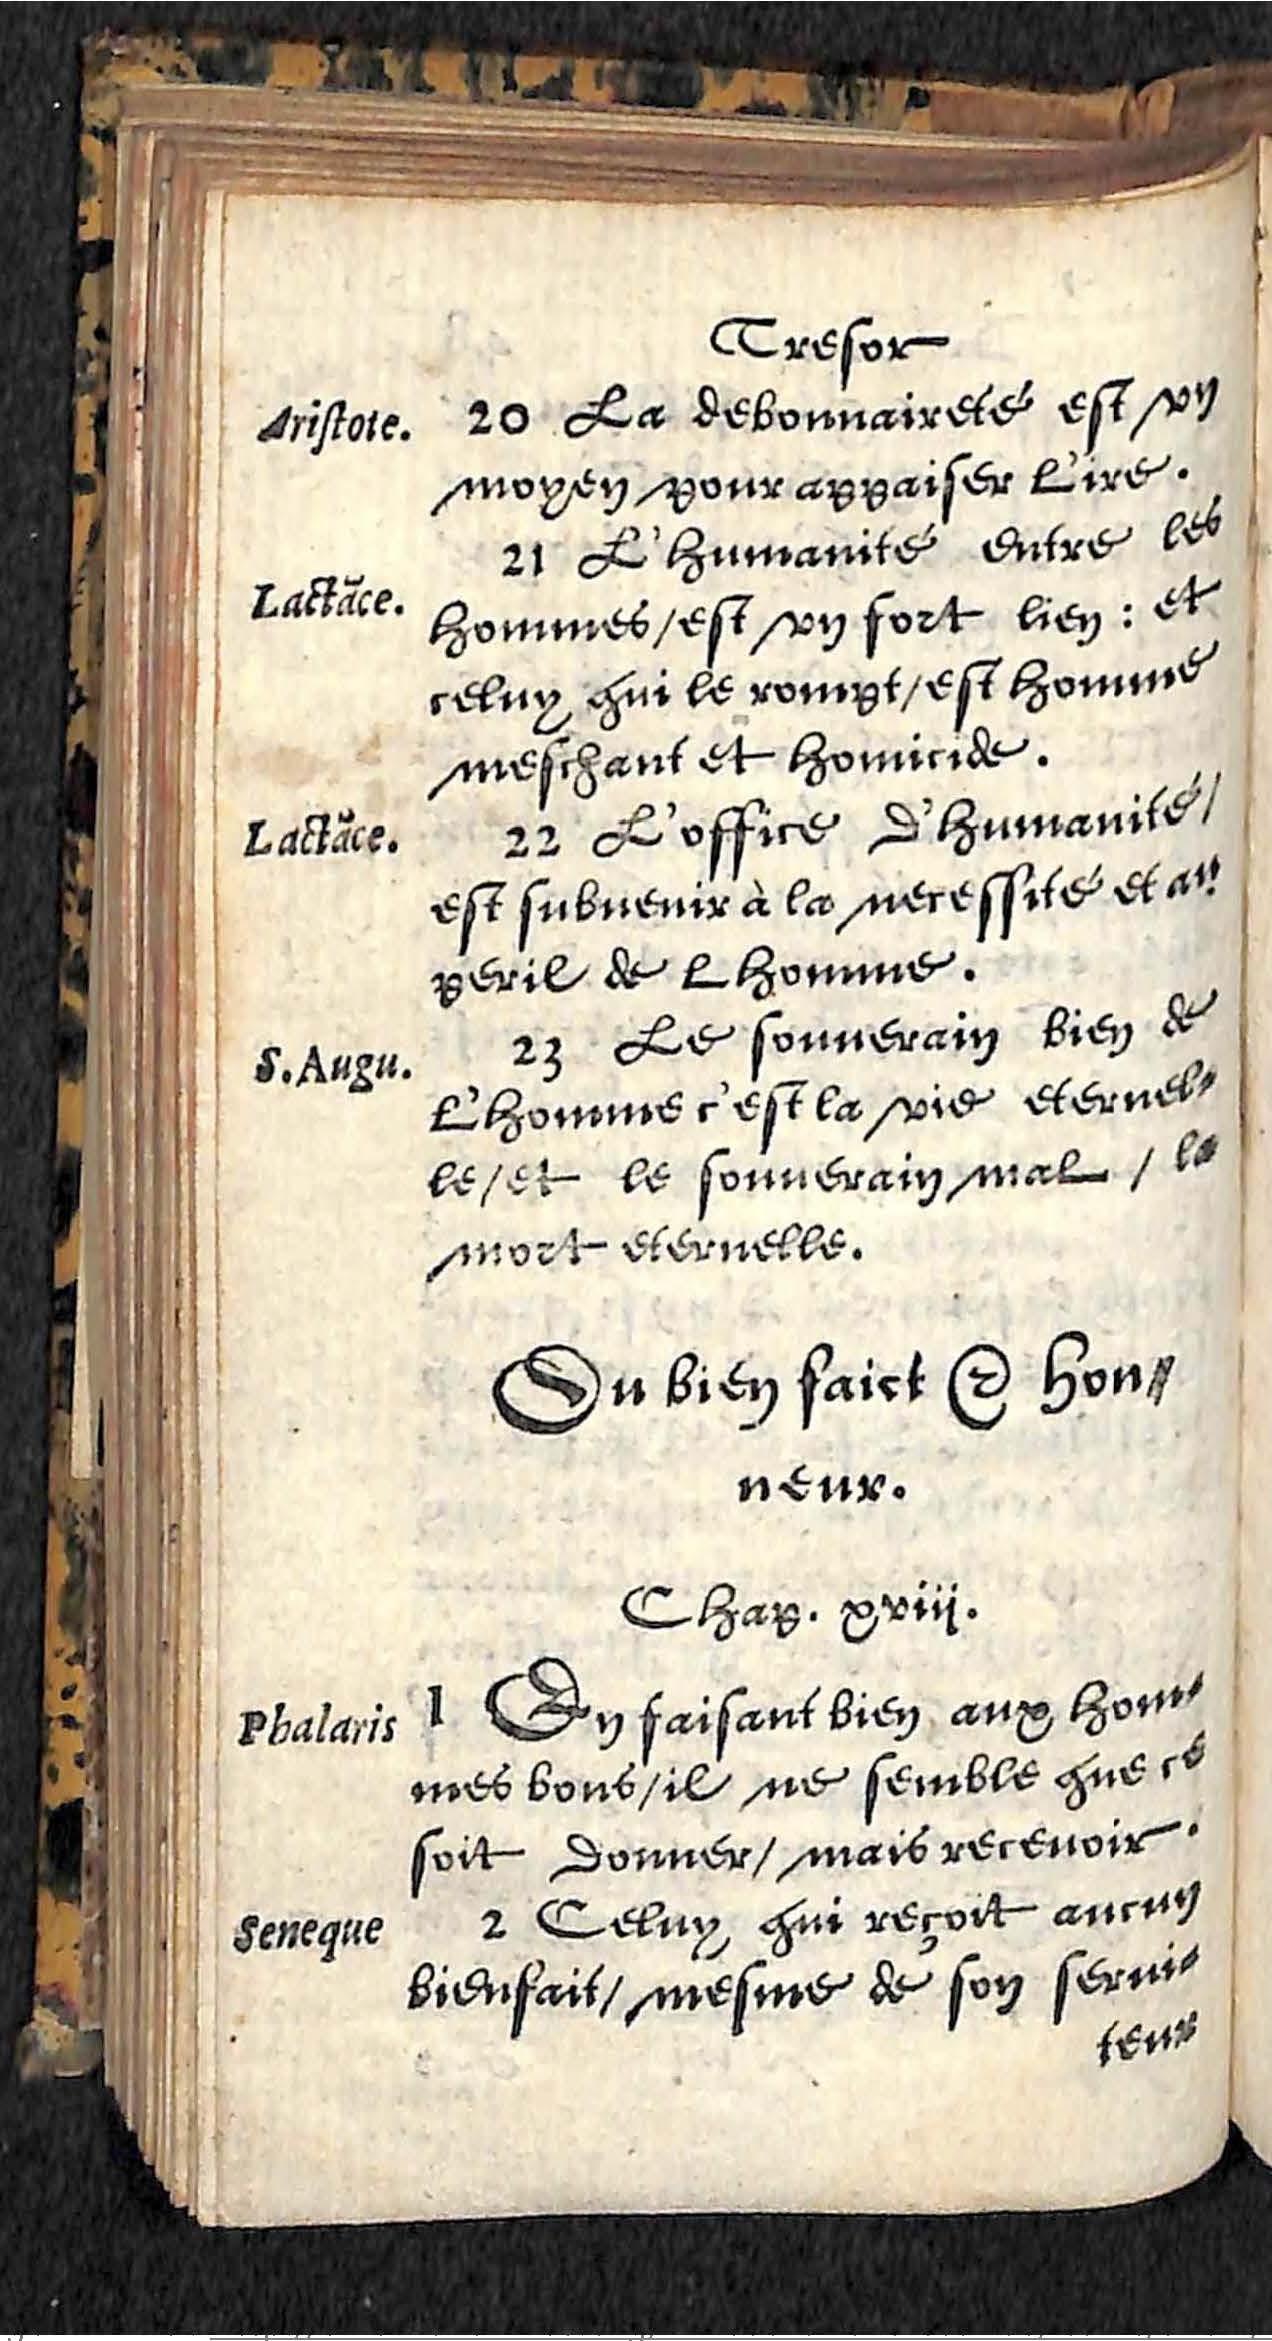 Tresor
Aristote. 20 La debonnaireté est vn
moyen pour appaiser l'ire.
21 L'humanité entre les
Lactãce. hommes/est vn fort lien : et
celuy qui le rompt/est homme
meschant et homicide.
Lactãce. 22 L'office d'humanité/
est subuenir à la necessité et au
peril de lhomme.
S.Augu. 23 Le souuerain bien de
l'homme c'est la vie eternel-
le/et le souuerain mal / la
mort eternelle.
Du bien faict & hon-
neur.
Chap. xviij.
Phalaris 1 En faisant bien aux hom-
mes bons/il ne semble que ce
soit donner/ mais receuoir.
Seneque 2 Celuy qui reçoit aucun
bienfait/ mesme de son serui-
teur